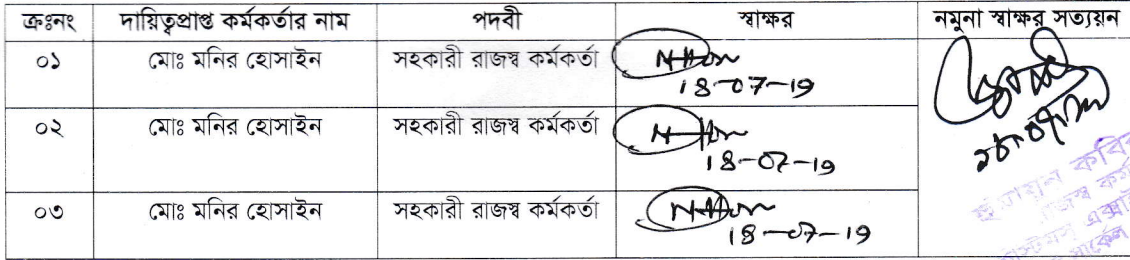 ক্রঃনং দায়িত্বপ্রাপ্ত কর্মকর্তার নাম পদবী স্বাক্ষর নমুনা স্বাক্ষর সত্যয়ন
০১ মোঃ মনির হোসাইন সহকারী রাজস্ব কর্মকর্তা
18-07-19
০২ মোঃ মনির হোসাইন সহকারী রাজস্ব কর্মকর্তা
18-07-19
০৩ মোঃ মনির হোসাইন সহকারী রাজস্ব কর্মকর্তা
18-07-19
হুমায়ুন কবির
রাজস্ব